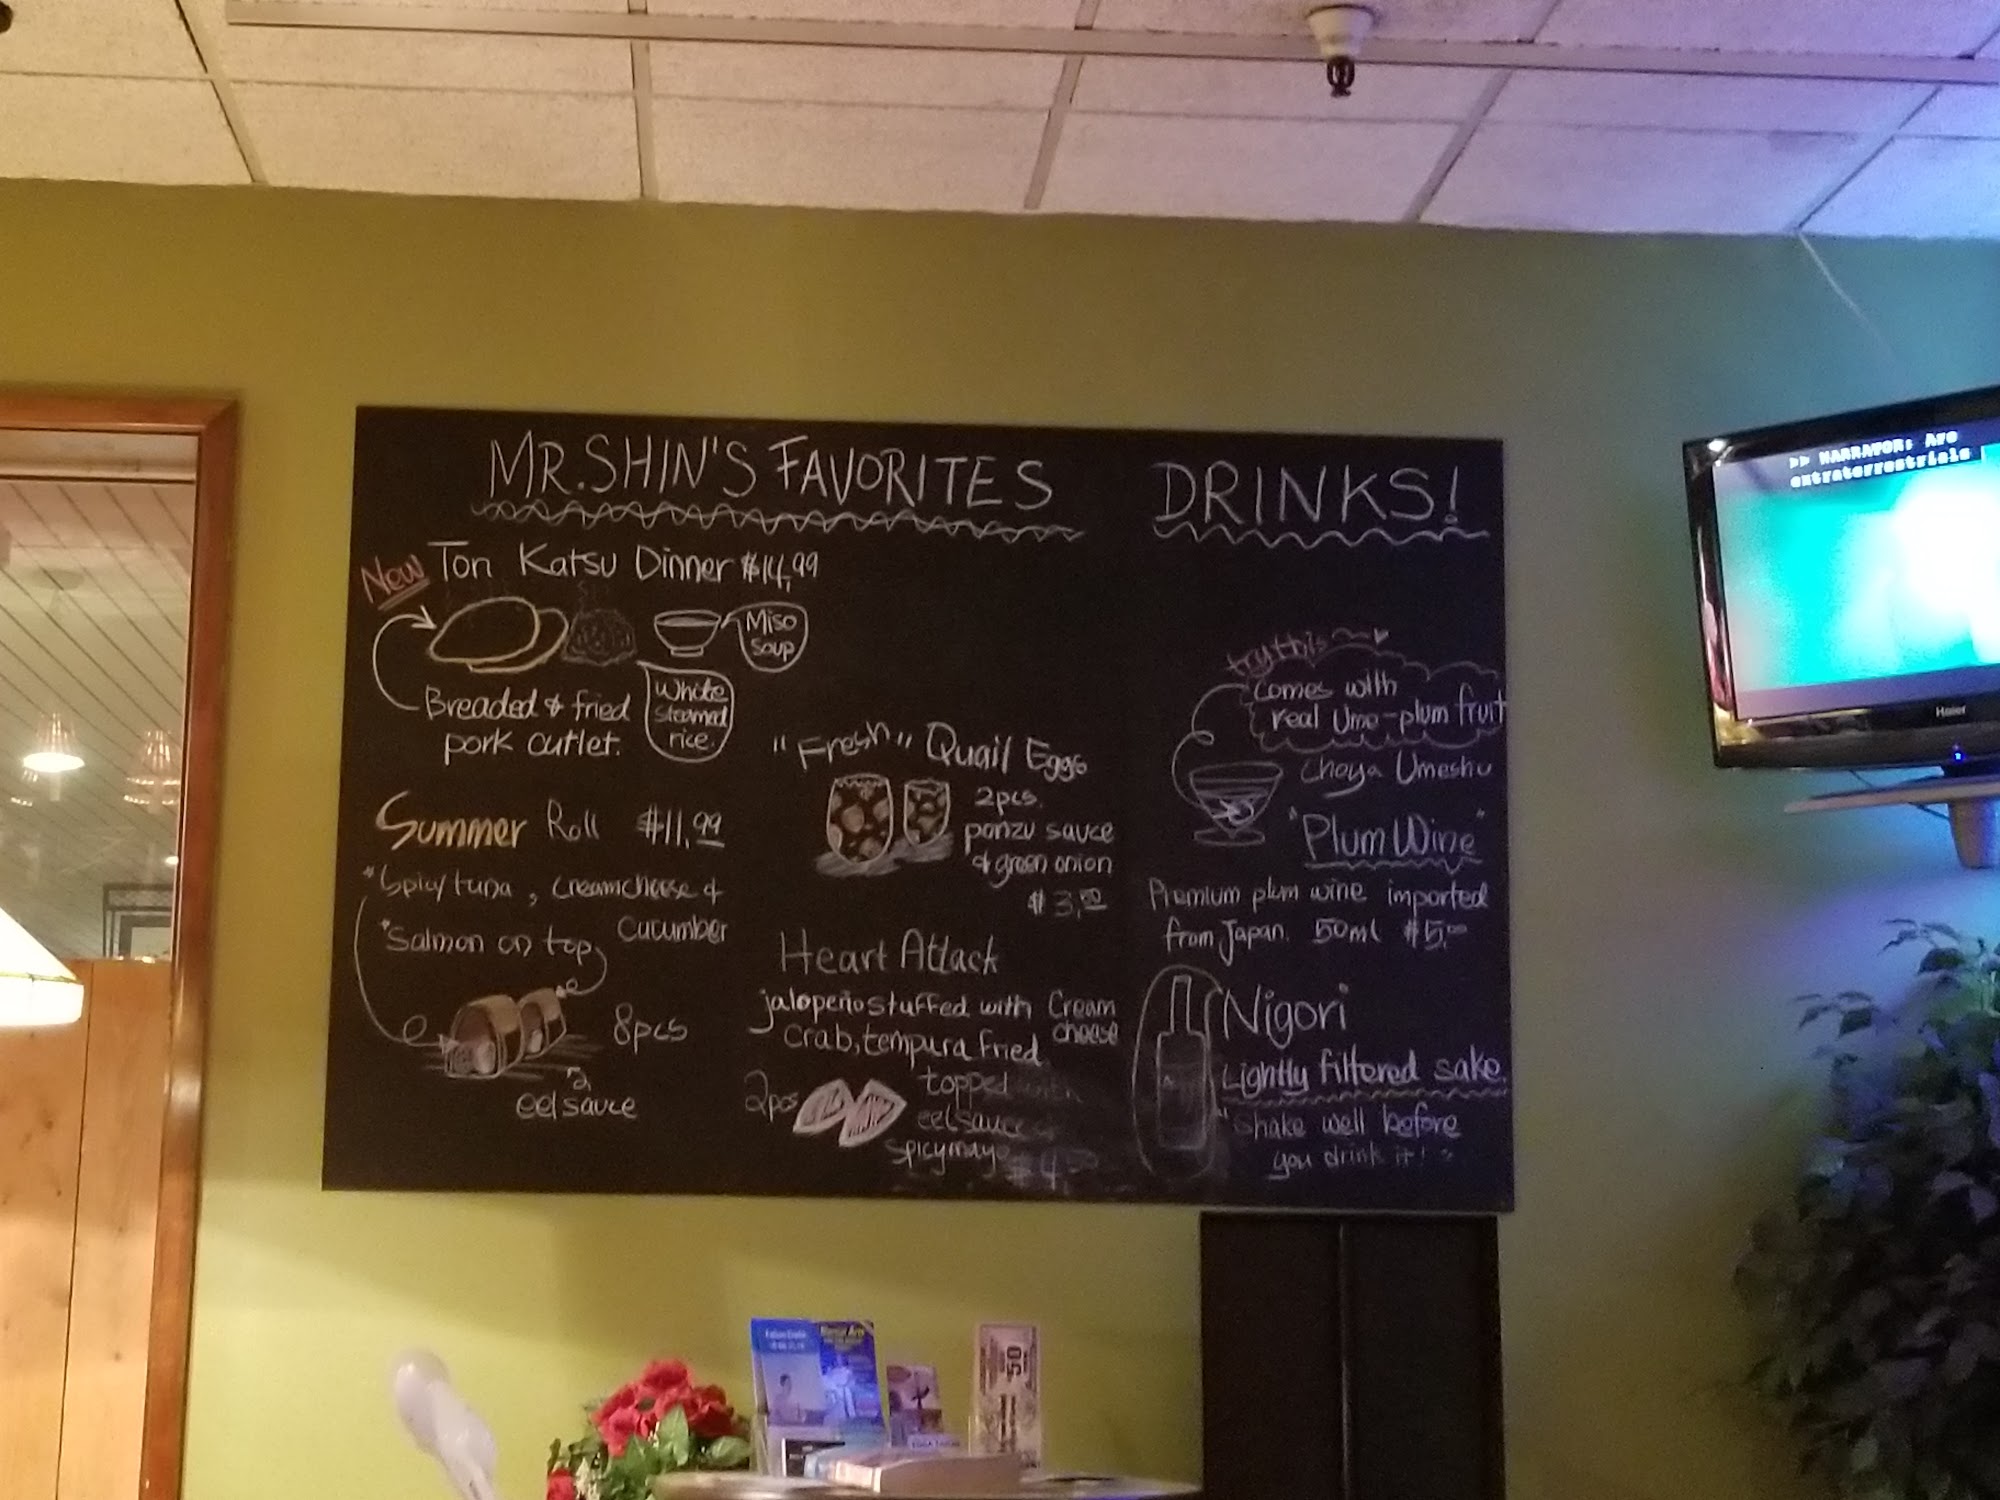 MR. SHIN'S FAVORITES
New Ton Katsu Dinner $14.99
Miso
Soup
Breaded & fried
pork cutlet.
White
steamed
rice.
Summer Roll $11.99
*Spicy tuna, creamcheese &
cucumber
*Salmon on top
8pcs
eel sauce
"Fresh" Quail Eggs
2pcs.
ponzu sauce
& green onion
$3.50
Heart Attack
jalopeño stuffed with Cream
cheese
crab, tempura fried
topped with
eel sauce
spicy mayo
2pcs
DRINKS!
try this
comes with
real Ume-plum fruit
Choya Umeshu
"Plum Wine"
Premium plum wine imported
from Japan. 50ml $5.00
Nigori
Lightly filtered sake.
"Shake well before
you drink it!"
>> NARRATOR: Are
extraterrestrials
Haier
50